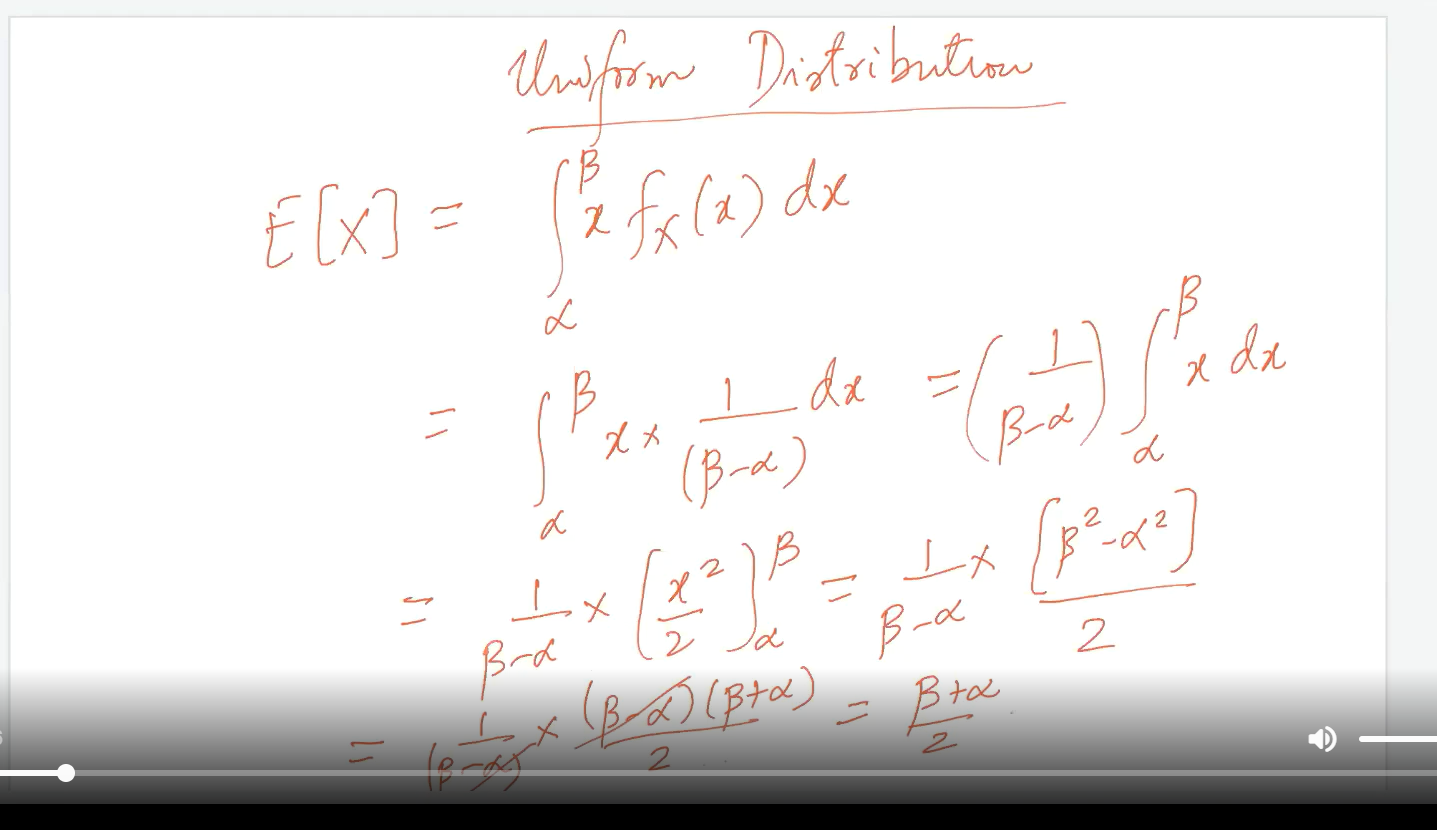 Uniform Distribution
E[X] = ∫_α^β x f_X(x) dx
= ∫_α^β x × 1/(β-α) dx = (1/(β-α)) ∫_α^β x dx
= 1/(β-α) × [x²/2]_α^β = 1/(β-α) × [β²-α²]/2
= 1/(β-α) × (β-α)(β+α)/2 = (β+α)/2